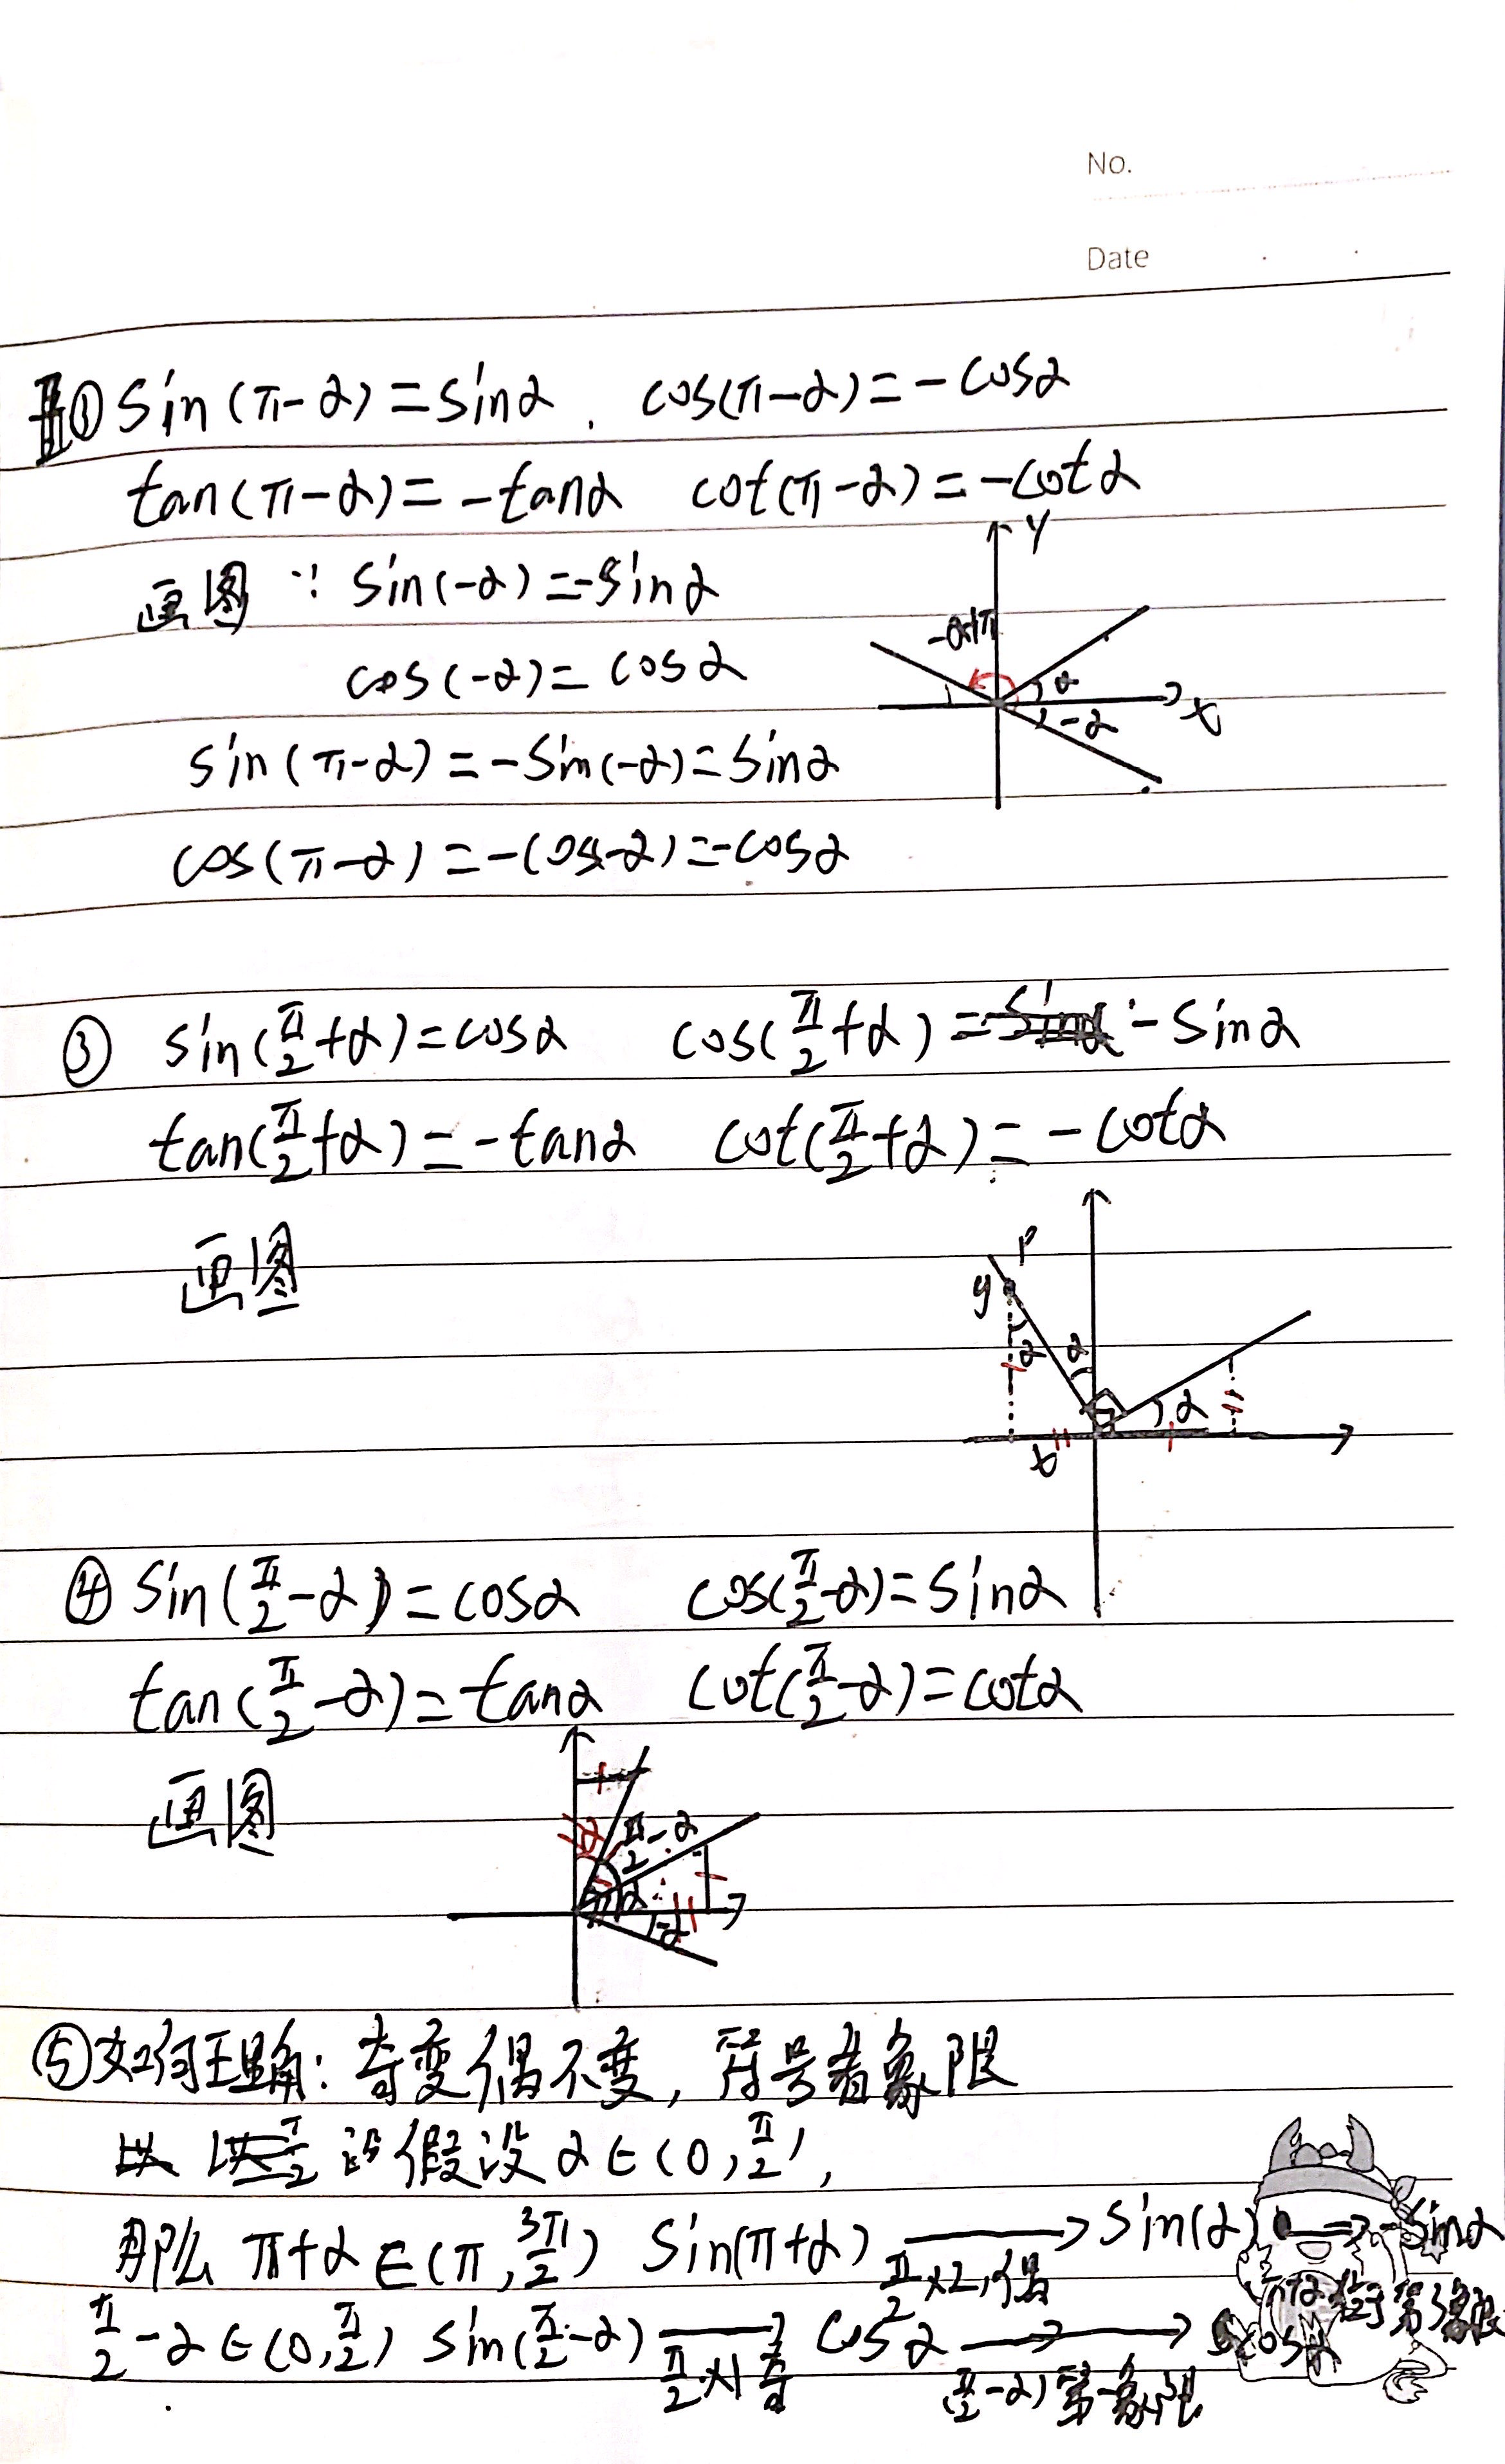 No.
Date
① sin(π-α)=sinα . cos(π-α)=-cosα
tan(π-α)=-tanα cot(π-α)=-cotα
画图 ∵ sin(-α)=-sinα
cos(-α)=cosα
sin(π-α)=-sin(-α)=sinα
cos(π-α)=-cos(-α)=-cosα
Y
-α+π
α
-α
x
③ sin(π/2+α)=cosα cos(π/2+α)=-sinα
tan(π/2+α)=-tanα cot(π/2+α)=-cotα
画图
P
y
α α
α
x
④ sin(π/2-α)=cosα cos(π/2-α)=sinα
tan(π/2-α)=tanα cot(π/2-α)=cotα
画图
α π/2-α
α
-α
⑤如何理解: 奇变偶不变, 符号看象限
假设α∈(0,π/2),
那么 π+α∈(π,3π/2) sin(π+α) → sin(α) → -sinα
π/2×2,偶 π+α在第3象限
π/2-α∈(0,π/2) sin(π/2-α) → cosα → cosα
π/2×1奇 (π/2-α)第一象限